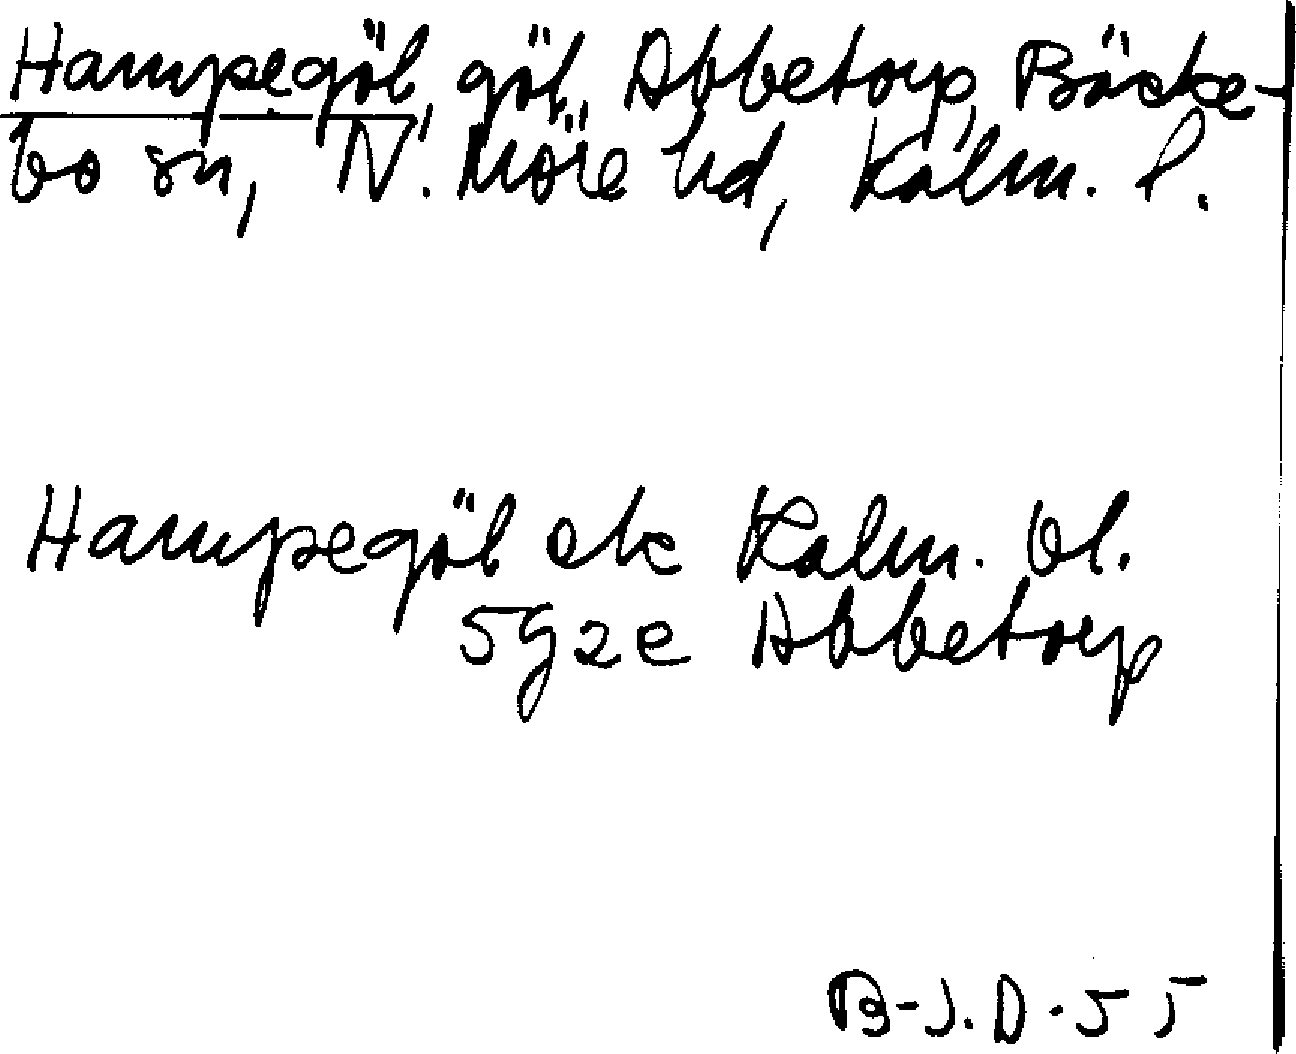 Hampegöl, göl, Abbetorp, Bäcke-
bo sn, N. Möre hd, Kalm. l.
Hampegöl ek Kalm. bl.
5g2e Abbetorp
B-J.D-55